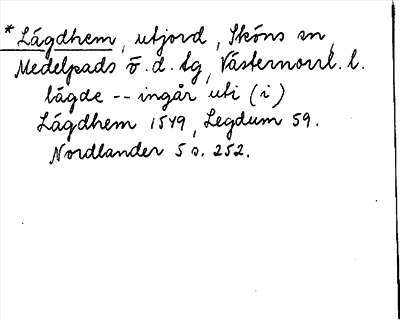 * Lågdhem, utjord, Sköns sn,
Medelpads ö. d. tg, Västernorrl. l.
lägde -- ingår uti (i)
Lågdhem 1549, Legdum 59.
Nordlander 5 s. 252.